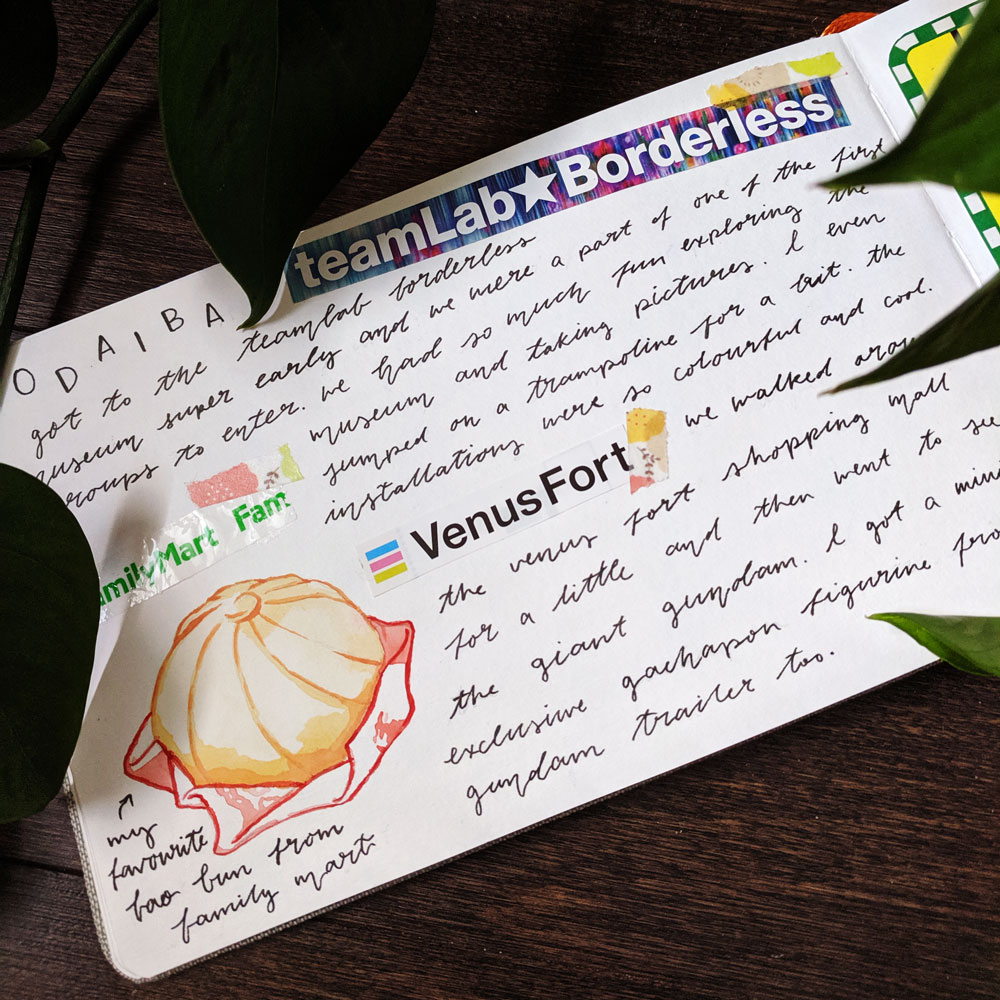 teamLab★Borderless
ODAIBA
got to the teamlab borderless
museum super early and we were a part of one of the first
groups to enter. we had so much fun exploring the
museum and taking pictures. I even
jumped on a trampoline for a bit. the
installations were so colourful and cool.
FamilyMart Fam
VenusFort
we walked around
the venus fort shopping mall
for a little and then went to see
the giant gundam. I got a mini
exclusive gachapon figurine from
gundam trailer too.
my
favourite
bao bun from
family mart